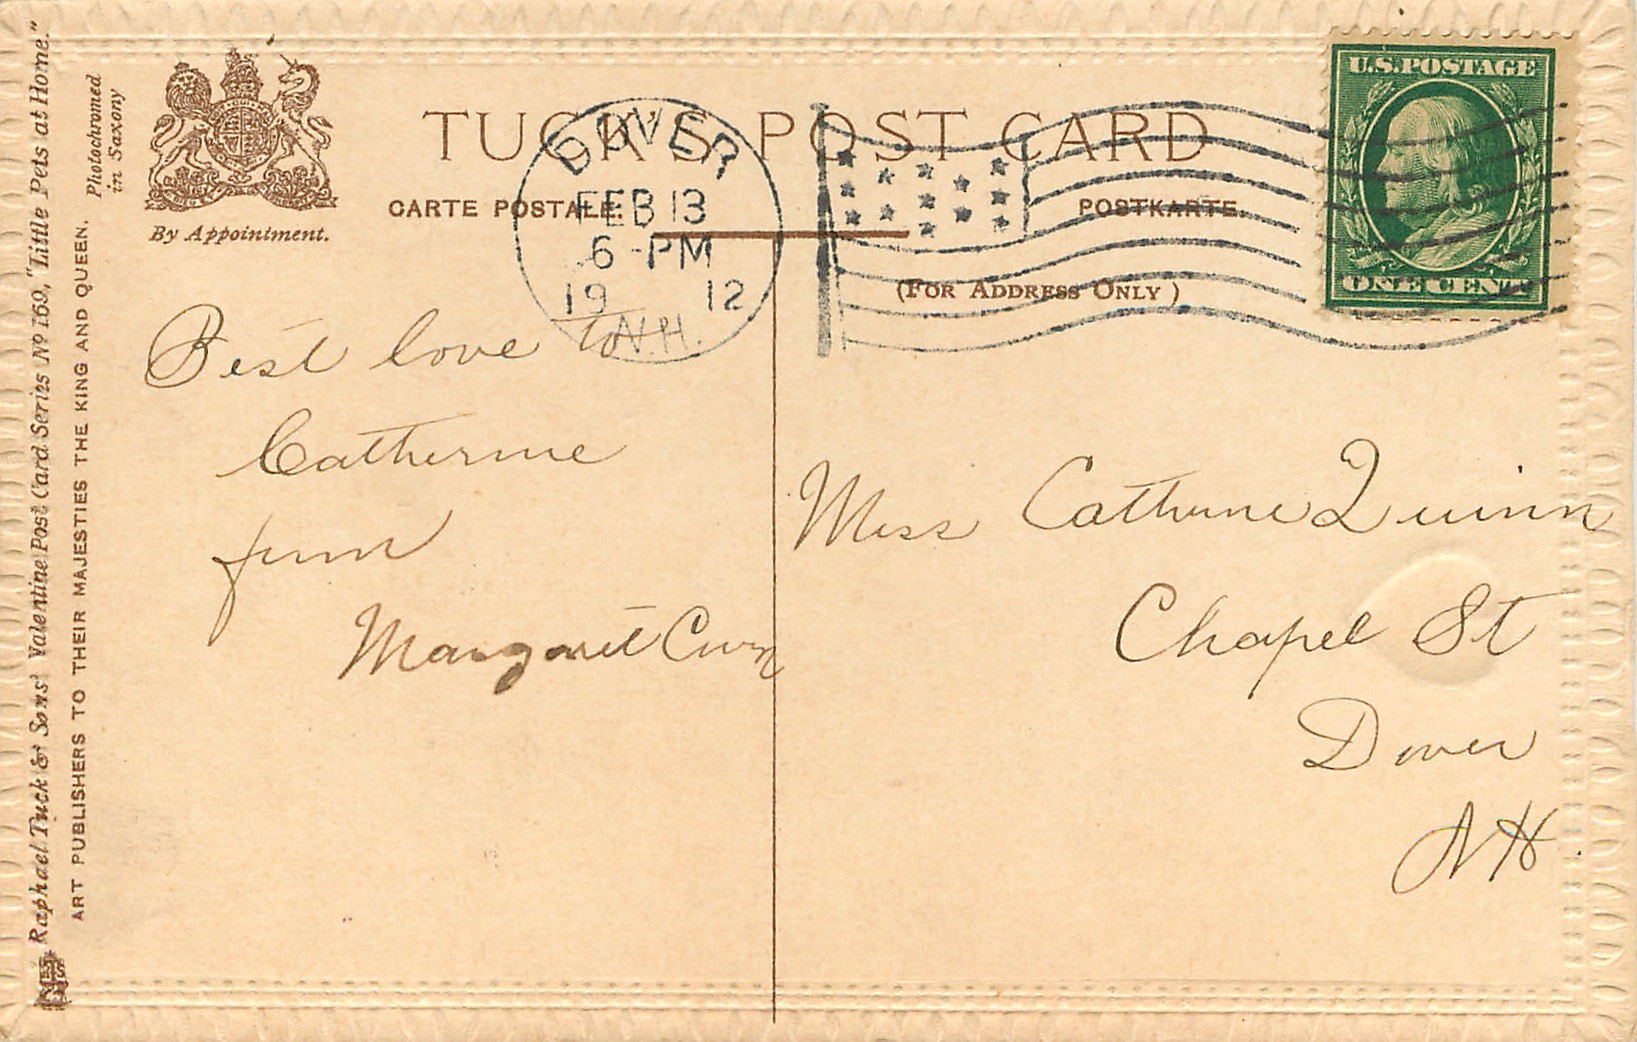 Raphael Tuck & Sons' Valentine Post Card Series Nº 169, "Little Pets at Home."
ART PUBLISHERS TO THEIR MAJESTIES THE KING AND QUEEN.
Photochromed
in Saxony
By Appointment.
TUCK'S POST CARD
CARTE POSTALE.
POSTKARTE.
(FOR ADDRESS ONLY)
DOVER
FEB 13
6 - PM
19 12
N.H.
U.S. POSTAGE
ONE CENT
Best love to
Catherine
from
Margaret
Miss Catherine Quinn
Chapel St
Dover
NH.